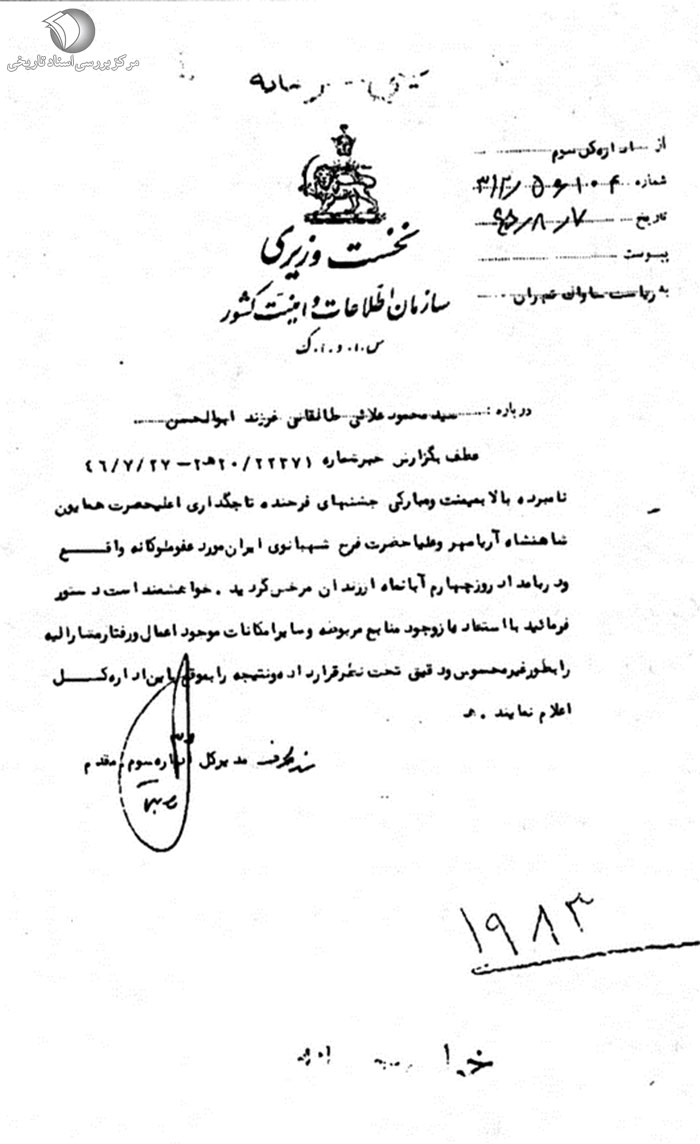 مرکز بررسی اسناد تاریخی
از اداره کل سوم
شماره
تاریخ
پیوست
به ریاست ساواک تهران
نخست وزیری
سازمان اطلاعات و امنیت کشور
س.ا.و.ا.ک
درباره: سید محمود علائی طالقانی فرزند ابوالحسن
عطف بگزارش خبر شماره ۲۰/۲۲۳۷۱هـ۲ – ۴۶/۷/۲۷
نامبرده بالا بمیمنت ومبارکی جشنهای فرخنده تاجگذاری اعلیحضرت همایون
شاهنشاه آریامهر وعلیاحضرت فرح شهبانوی ایران مورد عفو ملوکانه واقع
ودربامداد روز چهارم آبانماه اززندان مرخص گردید. خواهشمند است دستور
فرمائید با استفاده از وجود منابع مربوطه وسایر امکانات موجود اعمال ورفتار مشارالیه
را بطور غیر محسوس ودقیق تحت نظر قرار داده ونتیجه را بموقع باین اداره کل
اعلام نمایند. هـ
مدیر کل اداره سوم. مقدم
۱۹۸۳